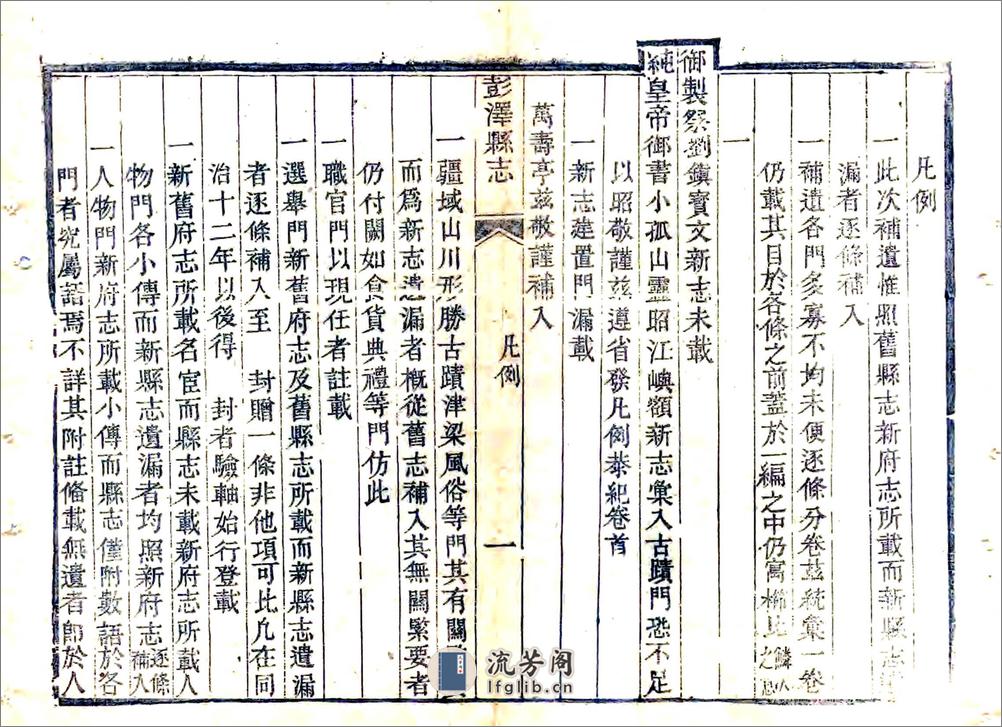 凡例
一此次補遺惟照舊縣志新府志所載而新縣志
漏者逐條補入
一補遺各門多寡不均未便逐條分卷茲統彙一卷
仍載其目於各條之前蓋於一編之中仍寓櫛比鱗次之
一
御製祭劉鎮寶文新志未載
純皇帝御書小孤山靈昭江嶼額新志彙入古蹟門恐不足
以昭敬謹茲遵省發凡例恭紀卷首
一新志建置門漏載
萬壽亭茲敬謹補入
彭澤縣志 凡例 一
一疆域山川形勝古蹟津梁風俗等門其有關
而爲新志遺漏者概從舊志補入其無關緊要者
仍付闕如食貨典禮等門仿此
一職官門以現任者註載
一選舉門新舊府志及舊縣志所載而新縣志遺漏
者逐條補入至 封贈一條非他項可比凡在同
治十二年以後得 封者驗軸始行登載
一新舊府志所載名宦而縣志未載新府志所載人
物門各小傳而新縣志遺漏者均照新府志逐條補入
一人物門新府志所載小傳而縣志僅附數語於各
門者究屬語焉不詳其附註俻載無遺者卽於人
流芳阁
lfglib.cn